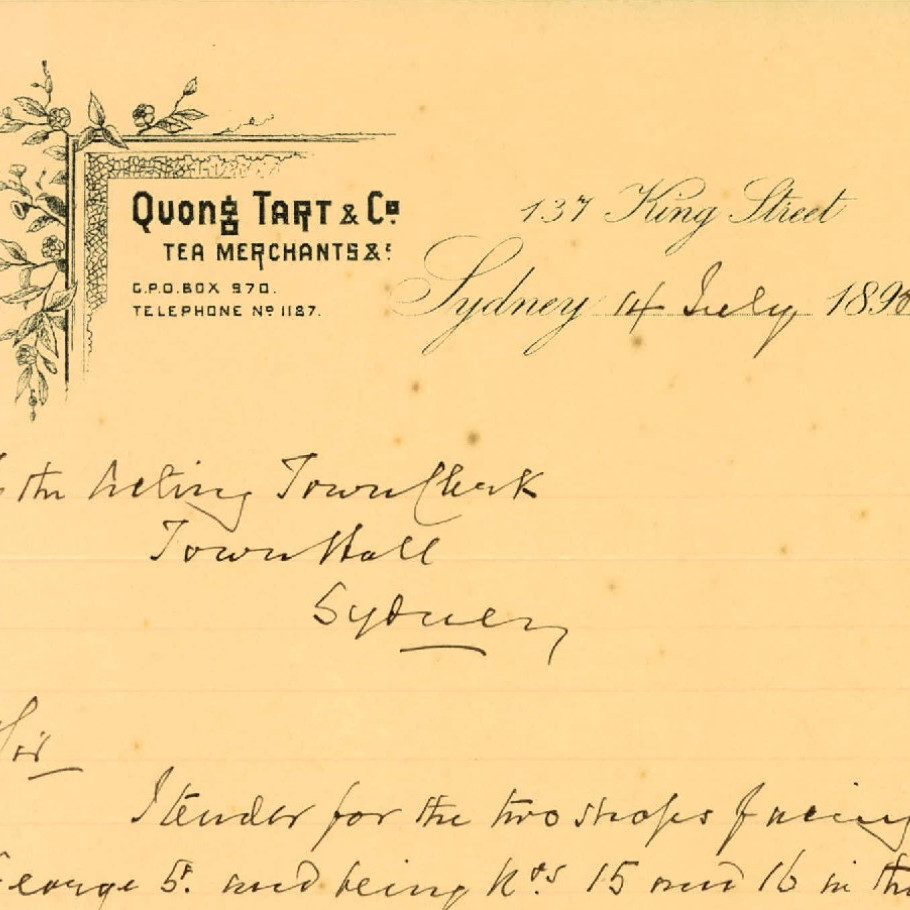 Quong Tart & Co.
TEA MERCHANTS &c.
G.P.O. BOX 970.
TELEPHONE No 1187.
137 King Street
Sydney 14 July 189
the Acting Town Clerk
Town Hall
Sydney
Sir
I tender for the two shops facing
George St. and being Nos 15 and 16 in the